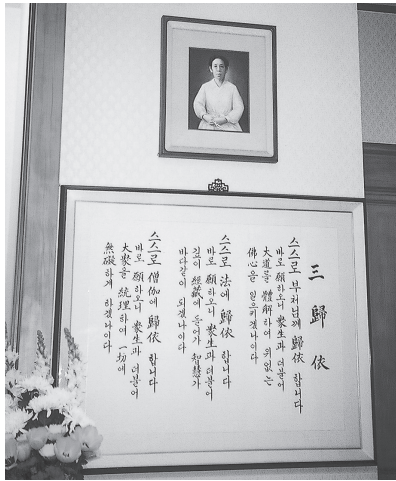 三歸依
스스로 부처님께 歸依 합니다
바로 願하오니 衆生과 더불어
大道를 體解하여 위없는
佛心을 일으키겠나이다
스스로 法에 歸依 합니다
바로 願하오니 衆生과 더불어
깊이 經藏에 들어가 智慧가
바다같이 되겠나이다
스스로 僧伽에 歸依 합니다
바로 願하오니 衆生과 더불어
大衆을 統理하여 一切에
無礙하게 하겠나이다